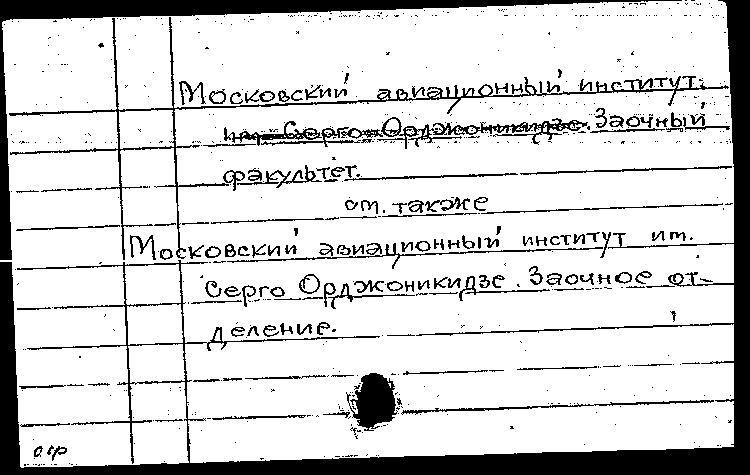 Московский авиационный институт.
им. Серго Орджоникидзе. Заочный
факультет.
см. также
Московский авиационный институт им.
Серго Орджоникидзе. Заочное от-
деление.